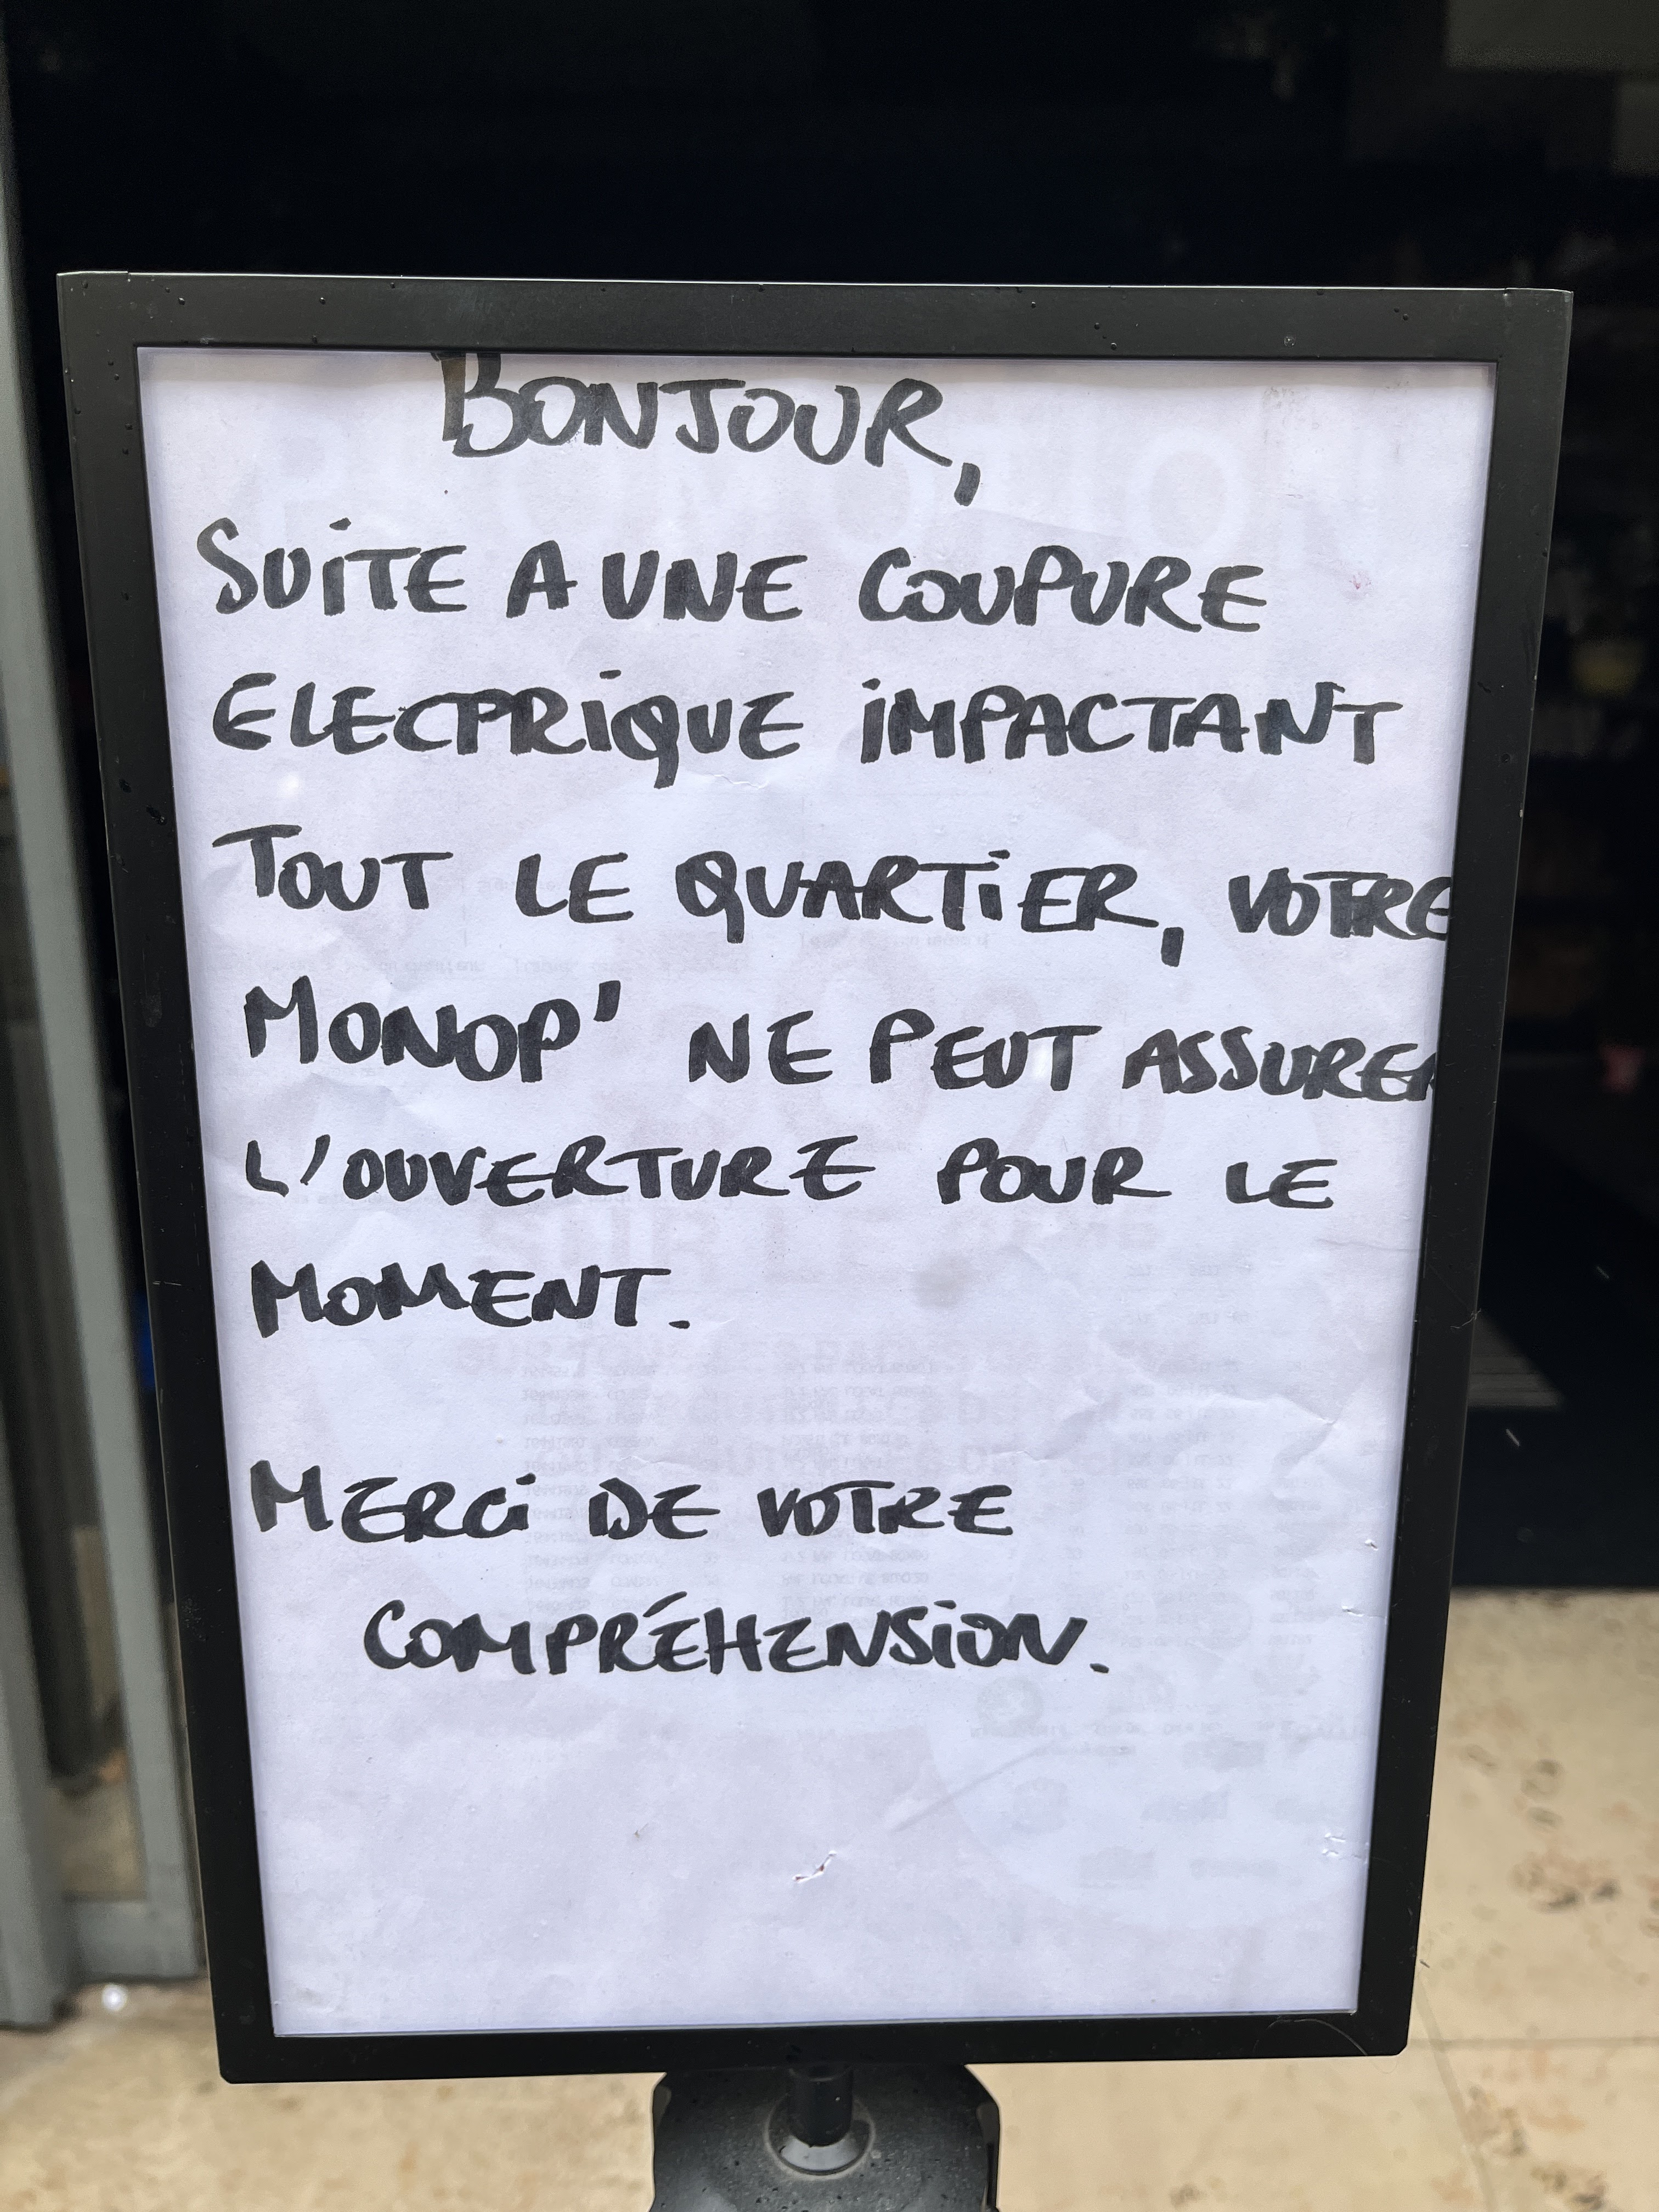 BONJOUR,
SUITE A UNE COUPURE
ELECTRIQUE IMPACTANT
TOUT LE QUARTIER, VOTRE
MONOP' NE PEUT ASSURER
L'OUVERTURE POUR LE
MOMENT.
MERCI DE VOTRE
COMPRÉHENSION.